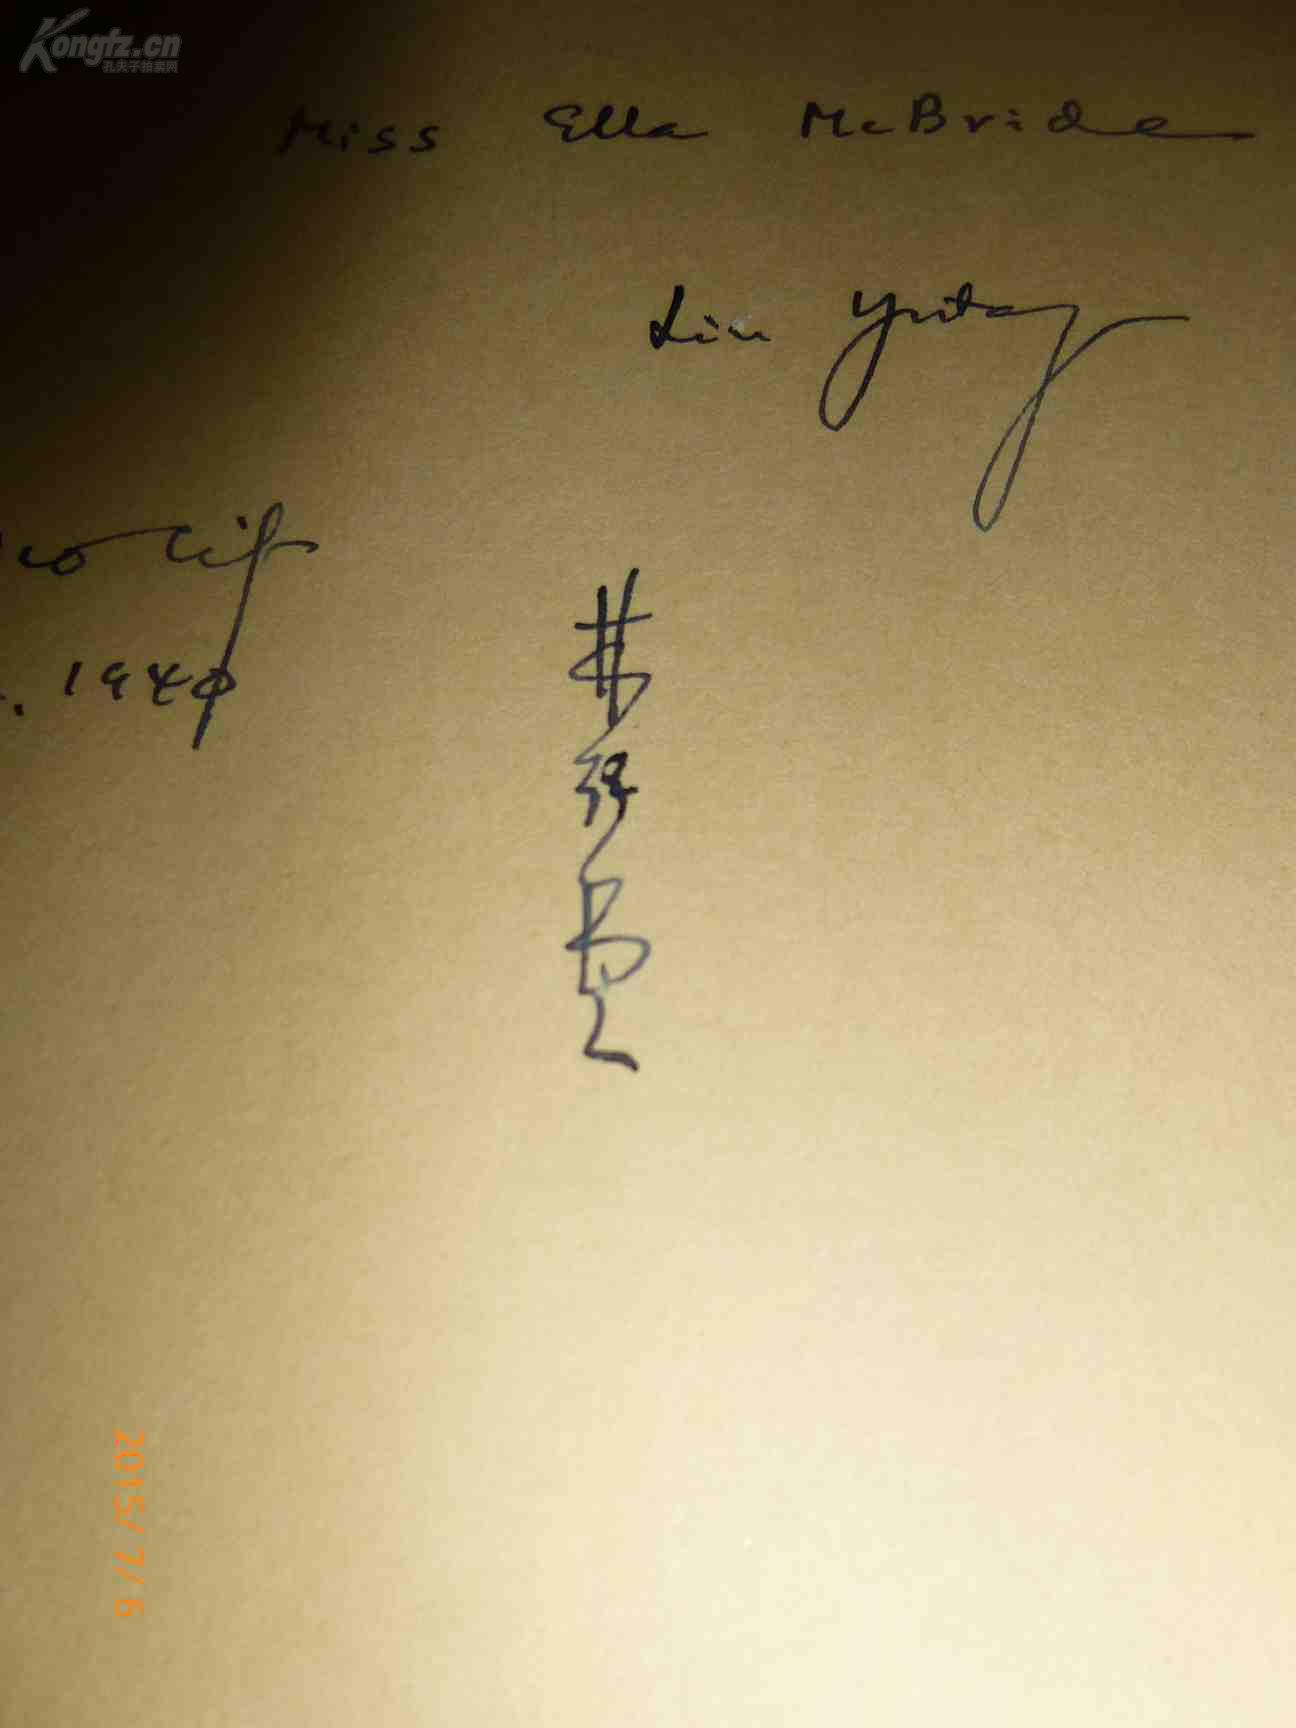 Kongfz.cn
孔夫子拍卖网
Miss Ella McBride
Lin Yutang
City
1940
2015/7/6